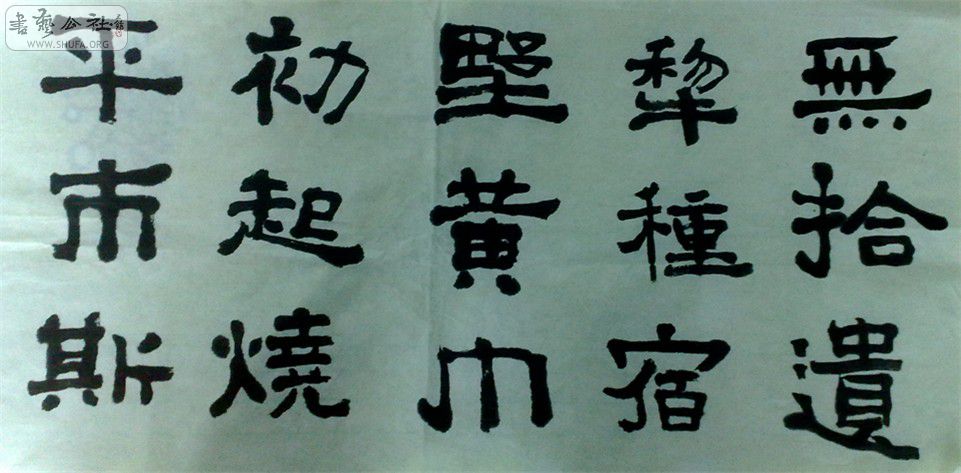 書藝公社
WWW.SHUFA.ORG
無拾遺
犂種宿
墅黃巾
初起燒
平市斯